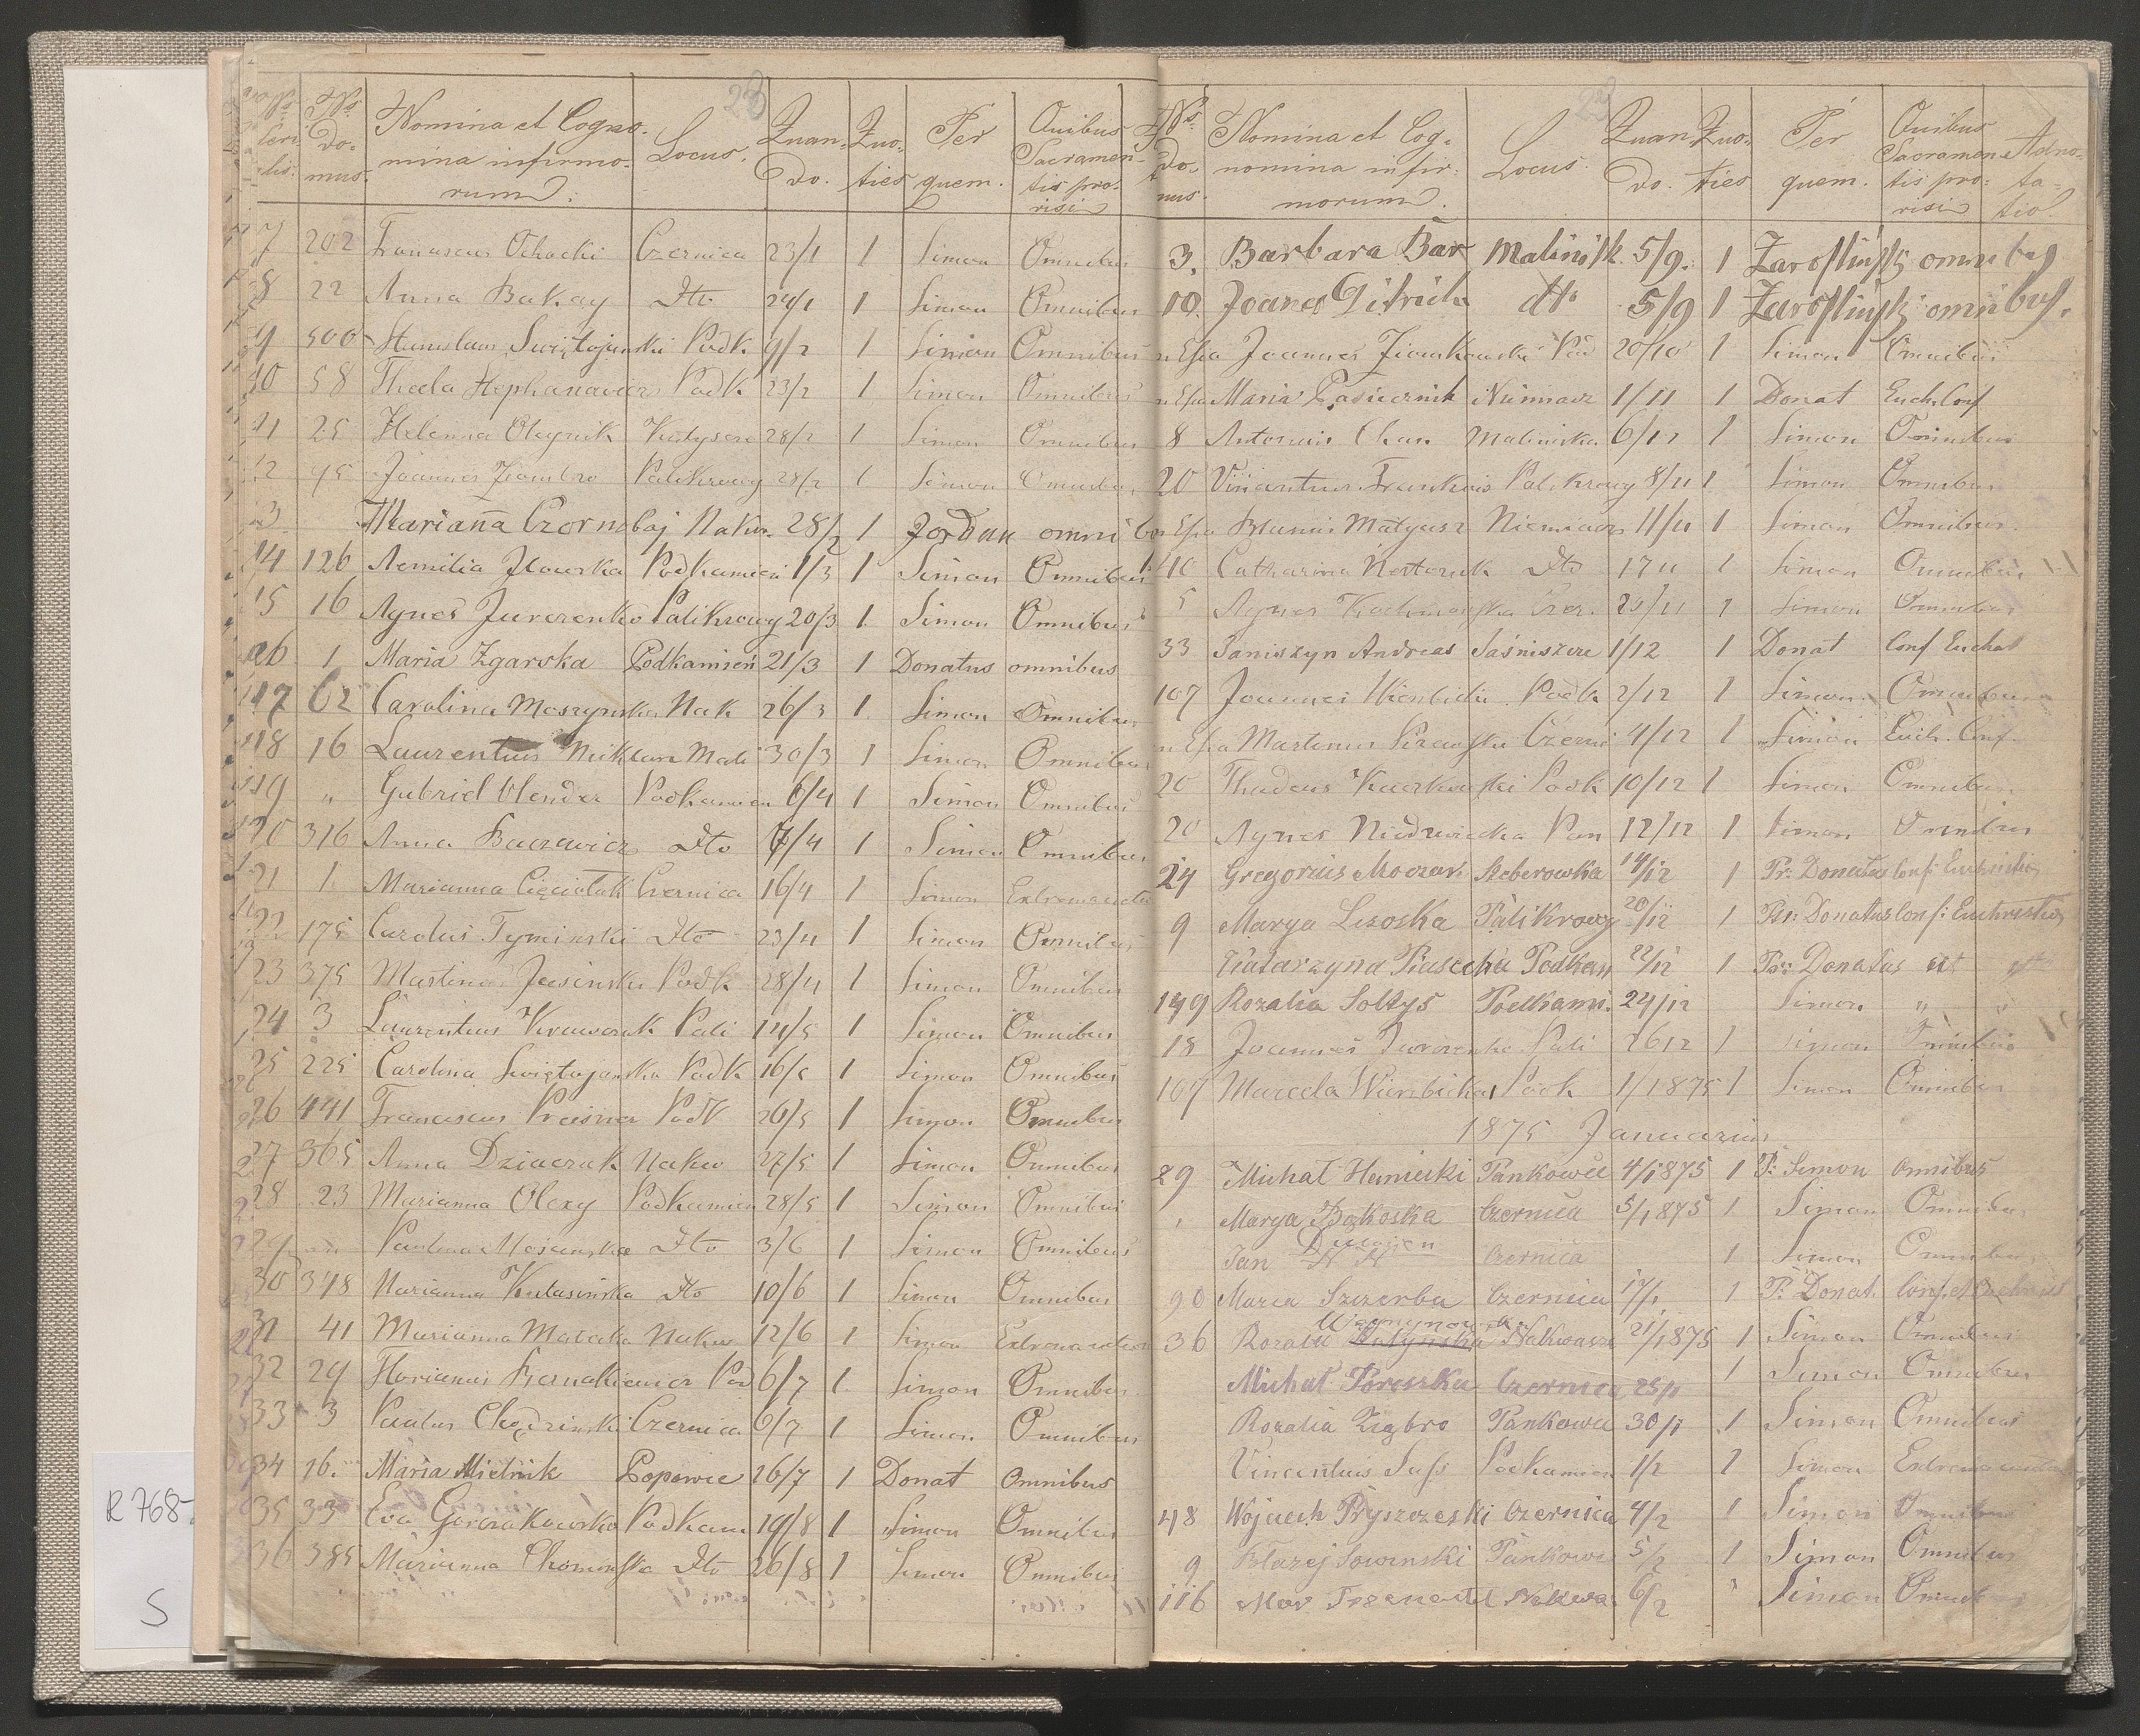 Nrs Seri- alis. Nrs Do- mus. Nomina et Cogno- mina infirmo- rum. Locus. Quan- do. Quo- ties Per quem. Quibus Sacramen- tis pro- visi
7 202 Franciscus Ochocki Czernica 23/1 1 Simon Omnibus
8 22 Anna Bakay Dto 24/1 1 Simon Omnibus
9 500 Stanislaus Swiętojanski Podk 9/2 1 Simon Omnibus
10 58 Thecla Stephanowicz Podk 23/2 1 Simon Omnibus
11 25 Helena Oleynik 28/2 1 Simon Omnibus
12 95 Joannes Ziombro Palikrowy 28/2 1 Simon Omnibus
13 Marianna Czornobaj Nakw. 28/2 1 Jordan omnibus
14 126 Aemilia Podkamień 1/3 1 Simon Omnibus
15 16 Agnes Jurczenko Palikrowy 20/3 1. Simon Omnibus
16 1 Maria Zgarska Podkamień 21/3 1 Donatus omnibus
17 62 Carolina Moszynska Nak 26/3 1. Simon Omnibus
18 16 Laurentius Mali 30/3 1 Simon Omnibus
19 " Gabriel Olender Podkamien 6/4 1 Simon Omnibus
20 316 Anna Dto 7/4 1 Simon Omnibus
21 1. Marianna Czernica 16/4 1 Simon
22 175 Carolus Tyminski Dto 23/4 1 Simon Omnibus
23 375 Martinus Jasinski Podk 28/4 1 Simon Omnibus
24 3 Laurentius Krawczuk Pali 14/5 1 Simon Omnibus
25 225 Carolina Swiętojanska Podk 16/5 1 Simon Omnibus
26 441 Franciscus Podk 20/5 1 Simon Omnibus
27 365 Anna Dziaczuk Nakw 27/5 1 Simon Omnibus
28 23 Marianna Olexy Podkamien 28/5 1 Simon Omnibus
29 Dto 3/6 1 Simon Omnibus
30 348 Marianna Kulasinska Dto 10/6 1 Simon Omnibus
31 41 Marianna Nakw 12/6 1 Simon
32 29 Florianus Bernakiewicz Pod 6/7 1. Simon Omnibus
33 3 Paulus Czernica 6/7 1 Simon Omnibus
34 16. Maria Mielnik Popowce 26/7 1 Donat Omnibus
35 33 Eva Gorczakowska Podkam 19/8 1 Simon Omnibus
36 385 Marianna Dto 26/8 1 Simon Omnibus
R 768
S
Nrs Do- mus. Nomina et Cog- nomina infir- morum. Locus. Quan- do. Quo- ties Per quem. Quibus Sacramen- tis pro- visi Adno- ta- tio.
3. Barbara Bar Malinisk. 5/9. 1 Zarośliński omnibus
10. Joanes Ditrich dto 5/9 1 Zarośliński omnibus.
Joannes Pod 20/10 1 Simon Omnibus
Maria Pasiecznik 1/11 1 Donat Euch. Conf
8 Antonius Chan Maliniska 6/11 1 Simon Omnibus
20 Palikrowy 8/11 1 Simon Omnibus
Blasius Matyasz 11/11 1 Simon Omnibus
10 Catharina Nestoruk Dto 17 11 1 Simon Omnibus
5 Agnes Czer. 1 Simon Omnibus
33 Janiszyn Andreas 1/12 1 Donat Conf Euchar
107 Joannes Podk 2/12 1 Simon Omnibus
Martinus Czerni 4/12 1 Simon Euch. Conf.
20 Thadeus Podk 10/12 1 Simon Omnibus
20 Agnes Niedzwiecka Pan 12/12 1 Simon Omnibus
24 Gregorius Moczar Heberowka 14/12 1 Pr: Donatus Conf: Euchristia
9 Marya Lisoska Palikrowy 20/12 1 Pr: Donatus Conf: Euchristia
Katarzyna Piasecka Podkam 22/12 1 Pr: Donatus ut
149 Rozalia Sołtys Podkami. 24/12 Simon " "
18 Joannes Pali 26 12 1 Simon Omnibus
107 Marcela Wierzbicka Podk 1/1 875 1 Simon Omnibus
1875 Januarius
29 Michał Hanicki Pankowce 4/1875 1 P: Simon omnibus
Marya Bąkoska Czernica 5/1875 1 Simon Omnibus
Jan N N Czernica 1 Simon Omnibus
90 Marea Szczerba Czernica 17/1 1 P. Donat. Conf. et
36 Rozalia Nakwasza 21/1875 1 Simon Omnibus
Michał Poroszka Czernica 25/1 1 Simon Omnibus
Rozalia Ziębro Pankowce 30/1 1 Simon Omnibus
Vincentius Podkamien 1/2 1 Simon
48 Wojciech Pryszczeski Czernica 4/2 1 Simon Omnibus
9 Błazej Sowinski Pankowc 5/2 1 Simon Omnibus
116 Nakwa 6/2 " Simon Omnib